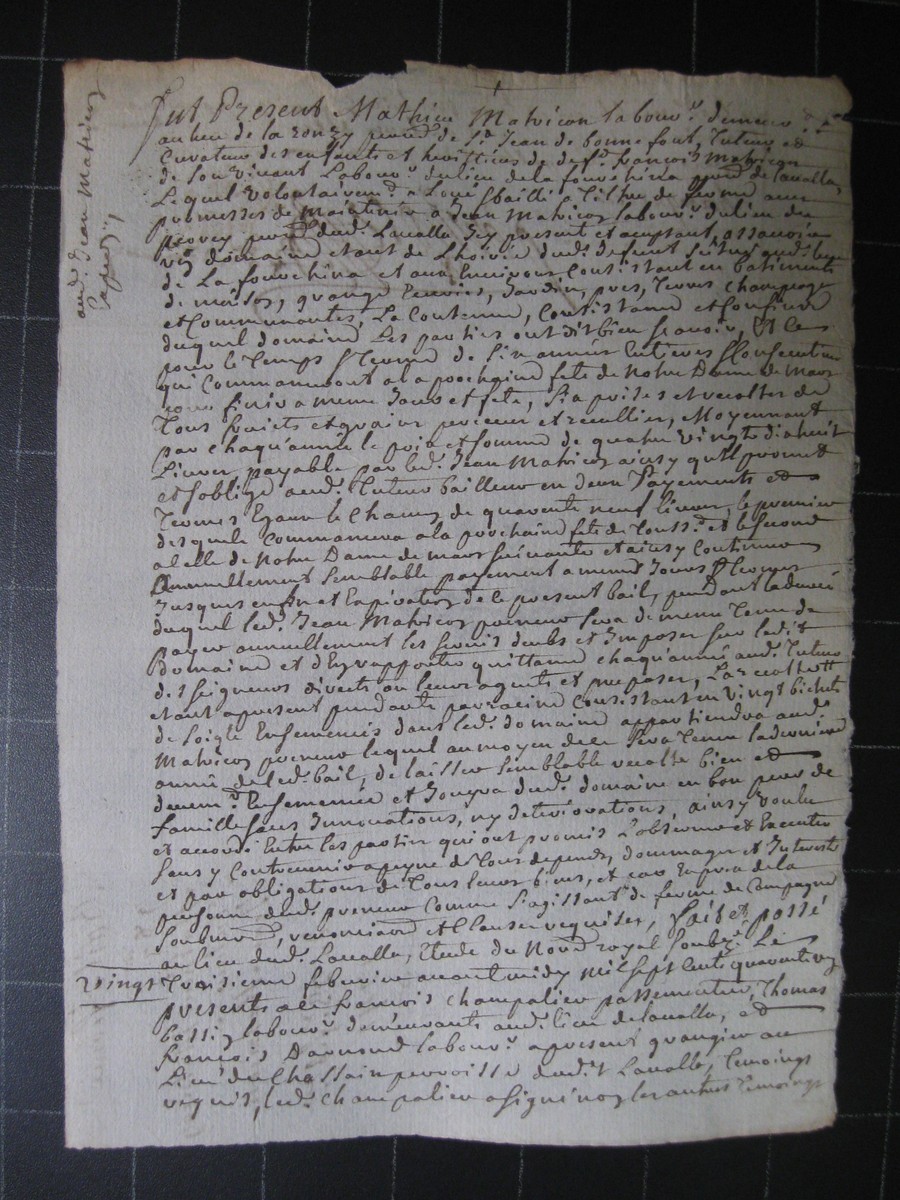 aud. Jean Matricon
Fut Present Mathieu Matricon labour.r demeur.t
au lieu de la ronzy parr.e de St. Jean de bonnefont, Tuteur et
Curateur des enfants et heritiers de deft. françois Matricon
de son vivant Labour.r du lieu de la fourchina parr.e de Lavalla,
Lequel volontairem.t a Loué & baillé a Tiltre de ferme aux
promesses de Maintenir a Jean Matricon labour.r du lieu du
parr.e dud. Lavalla Icy present et acceptant, assavoir
un domaine etant de L'hoirie dud. defunt scitué aud. lieu
de La fourchina et aux Environs Consistant en batiments
de maison, grange Ecuries, Jardin, prés, Terres champeage
et Communautes, La Contenue, Consistance et Confins
duquel domaine Les parties ont dit bien sçavoir, Et Ce
pour le Temps & Terme de six années Entieres & Consecutives
qui Commenceront a la prochaine fete de Notre Dame de Mars
pour finir a meme Jour et fete, Les prises et recoltes de
Tous fruits et percevoir et recueillir, Moyennant
par chaqu'année le prix et somme de quatre vingts dix huit
Livres payable par led. Jean Matricon ainsy qu'il promet
et s'oblige aud. Tuteur bailleur en deux Payements et
Termes Egaux le Chacun de quarente neuf livres, le premier
desquels Commencera a la prochaine fete de Touss.t et le second
a Celle de Notre Dame de mars suivante et ainsy Continuer
Annuellement semblable payement a memes Jours & Termes
Jusques en fin et Expiration de le present bail, pendant la durée
duquel led. Jean Matricon preneur sera de meme Tenu de
payer annuellement les servis deubs et Imposez sur ledit
Domaine et d'En rapporter quittance chaqu'année aud. Tuteur
des seigneurs directs ou leurs agents et preposez, La recolte
etant apresent pendante par racine Consistant en vingt bichets
de soigle Ensemencés dans led. domaine appartiendra aud.
Matricon preneur lequel au moyen de ce sera Tenu la derniere
année de led. bail, de laisser semblable recolte bien et
deuem.t Ensemencée et Jouyra dud. domaine en bon pere de
famille sans Innovations, ny deteriorations, ainsy voulu
et accordé Entre les parties qui ont promis L'observer et Executer
sans y Contrevenir a peyne de Tous depends, dommages et Interests
et par obligations de Tous leurs biens, et en Expres de la
personne dud. preneur Comme s'agissant de ferme de Campagne
soubmis.on, renonciaon et Clauses requises, fait et passé
au lieu dud. Lavalla, Etude du Not.re royal soubz.é Le
vingt Troisieme febvrier avant midy mil sept cents quarente
presents a ce françois Champalier passementier, Thomas
bassy labour.r demeurants aud. lieu de lavalla, et
françois Darnaud labour.r apresent granger au
Lieu du Chassain parroisse dudit Lavalla, Temoings
requis, led. Champalier a signé non les autres Temoings